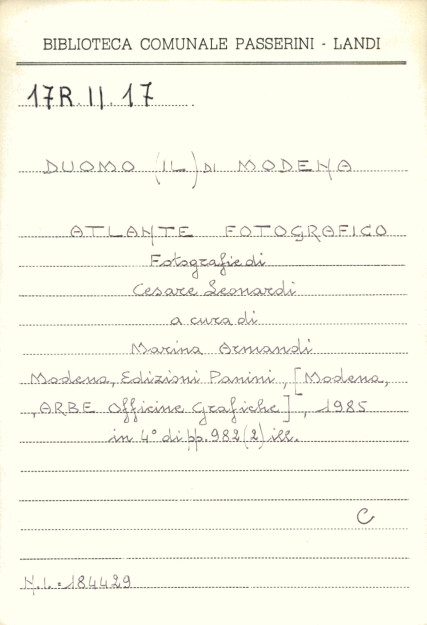 BIBLIOTECA COMUNALE PASSERINI - LANDI
17R.II.17
DUOMO (IL) DI MODENA
ATLANTE FOTOGRAFICO
Fotografie di
Cesare Leonardi
a cura di
Marina Armandi
Modena, Edizioni Panini, [Modena,
,ARBE Officine Grafiche], 1985
in 4° di pp. 982(2) ill.
C
N.I. = 184429